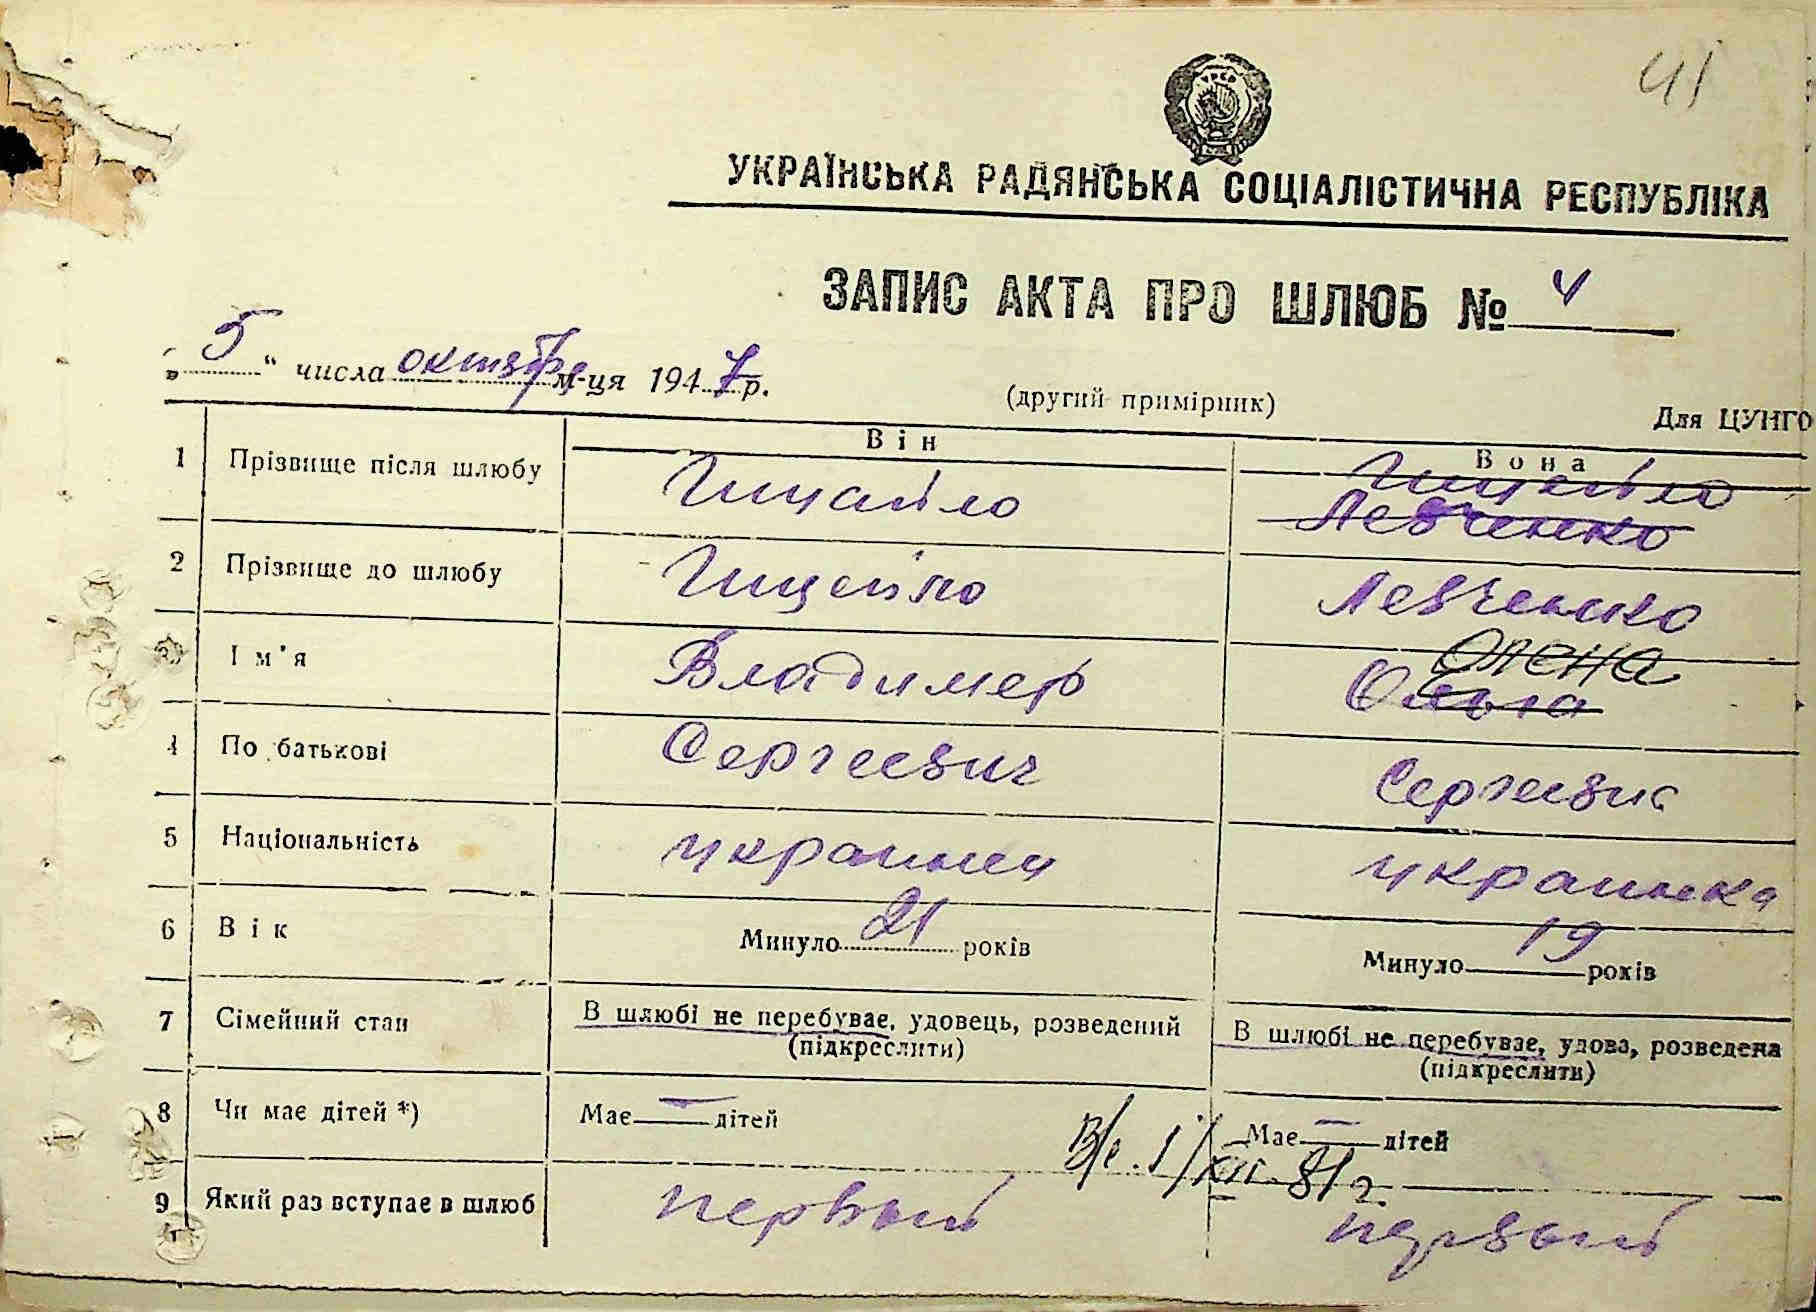 41
УРСР
УКРАЇНСЬКА РАДЯНСЬКА СОЦІАЛІСТИЧНА РЕСПУБЛІКА
ЗАПИС АКТА ПРО ШЛЮБ № 4
„5“ числа октября м-ця 1947 р.
(другий примірник)
Для ЦУНГО
Він
Вона
1 Прізвище після шлюбу
Гицайло
Гицайло
Левченко
2 Прізвище до шлюбу
Гицайло
Левченко
3 Ім'я
Владимер
Олена
Ольга
4 По батькові
Сергеевич
Сергеевна
5 Національність
украинец
украинка
6 Вік
Минуло 21 років
Минуло 19 років
7 Сімейний стан
В шлюбі не перебуває, удовець, розведений
(підкреслити)
В шлюбі не перебуває, удова, розведена
(підкреслити)
8 Чи має дітей *)
Має — дітей
Має — дітей
1/XII-81 г.
9 Який раз вступає в шлюб
первый
первый